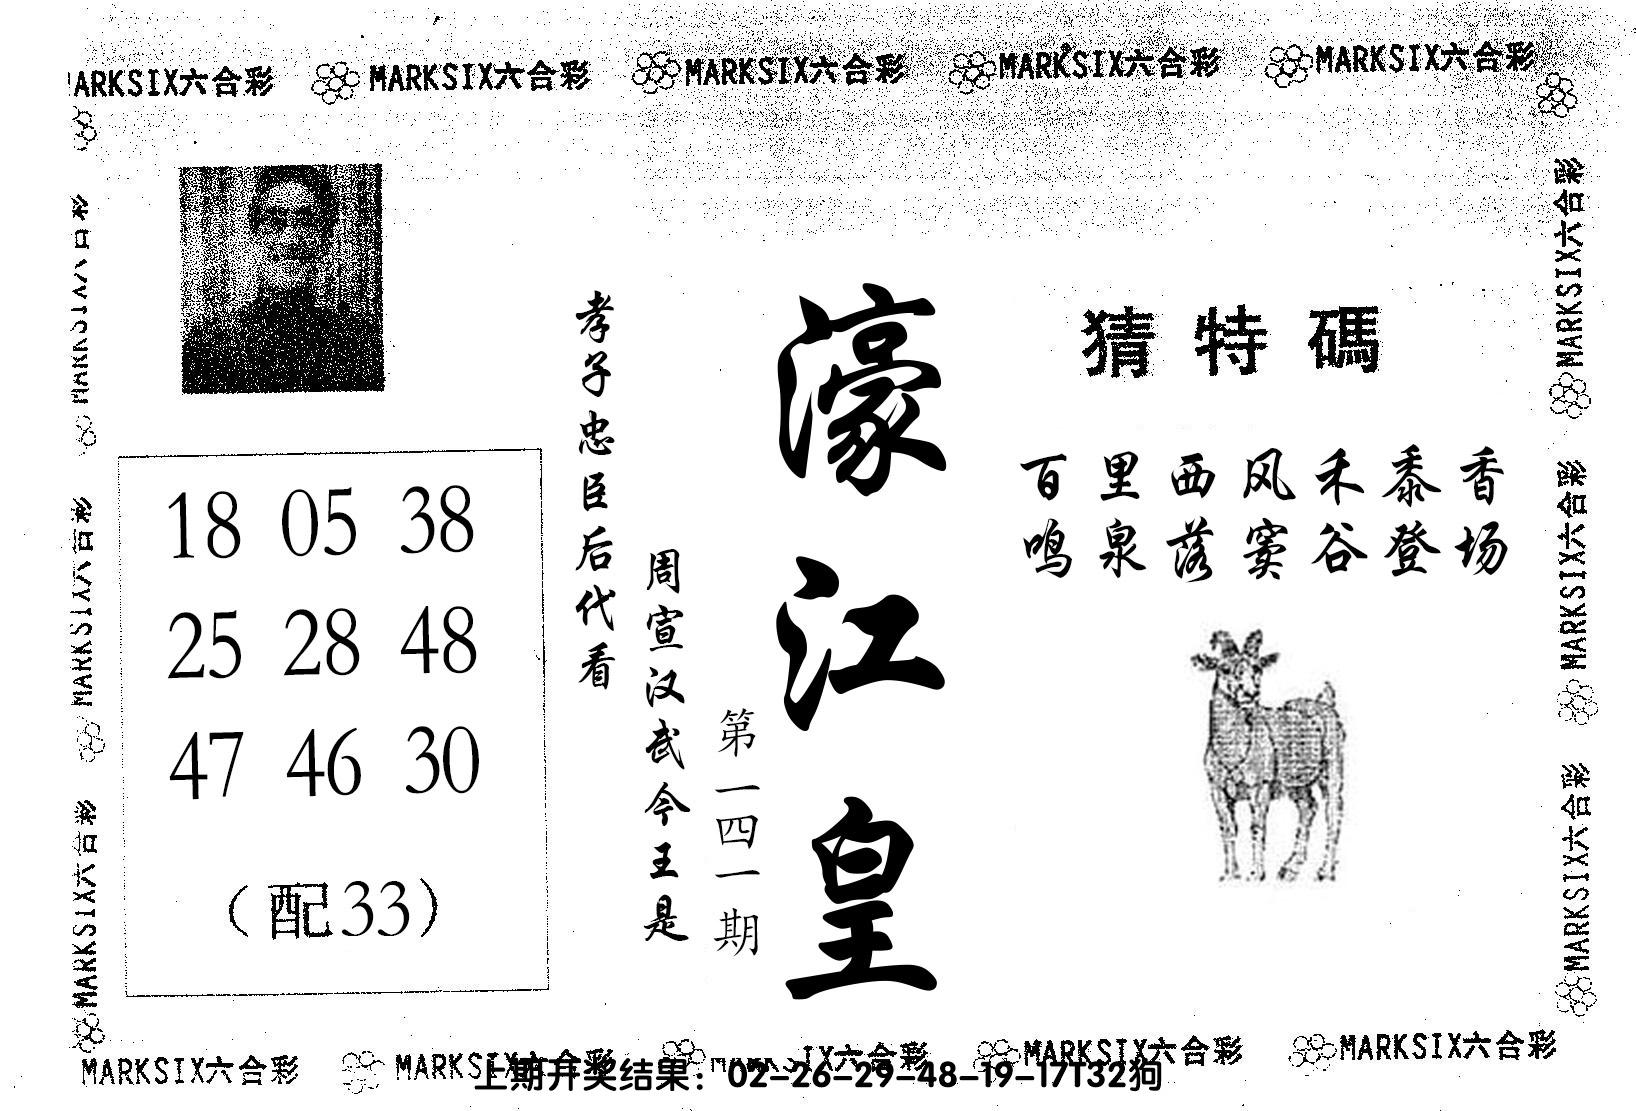 MARKSIX六合彩 MARKSIX六合彩 MARKSIX六合彩 MARKSIX六合彩
MARKSIX六合彩
MARKSIX六合彩
MARKSIX六合彩
猜特碼
百里西风禾黍香
鸣泉落窦谷登场
濠江皇
第一四一期
周宣汉武今王是
孝子忠臣后代看
18 05 38
25 28 48
47 46 30
(配33)
MARKSIX六合彩
MARKSIX六合彩
MARKSIX六合彩 MARKSIX六合彩 MARKSIX六合彩 MARKSIX六合彩
上期开奖结果：02-26-29-48-19-17T32狗